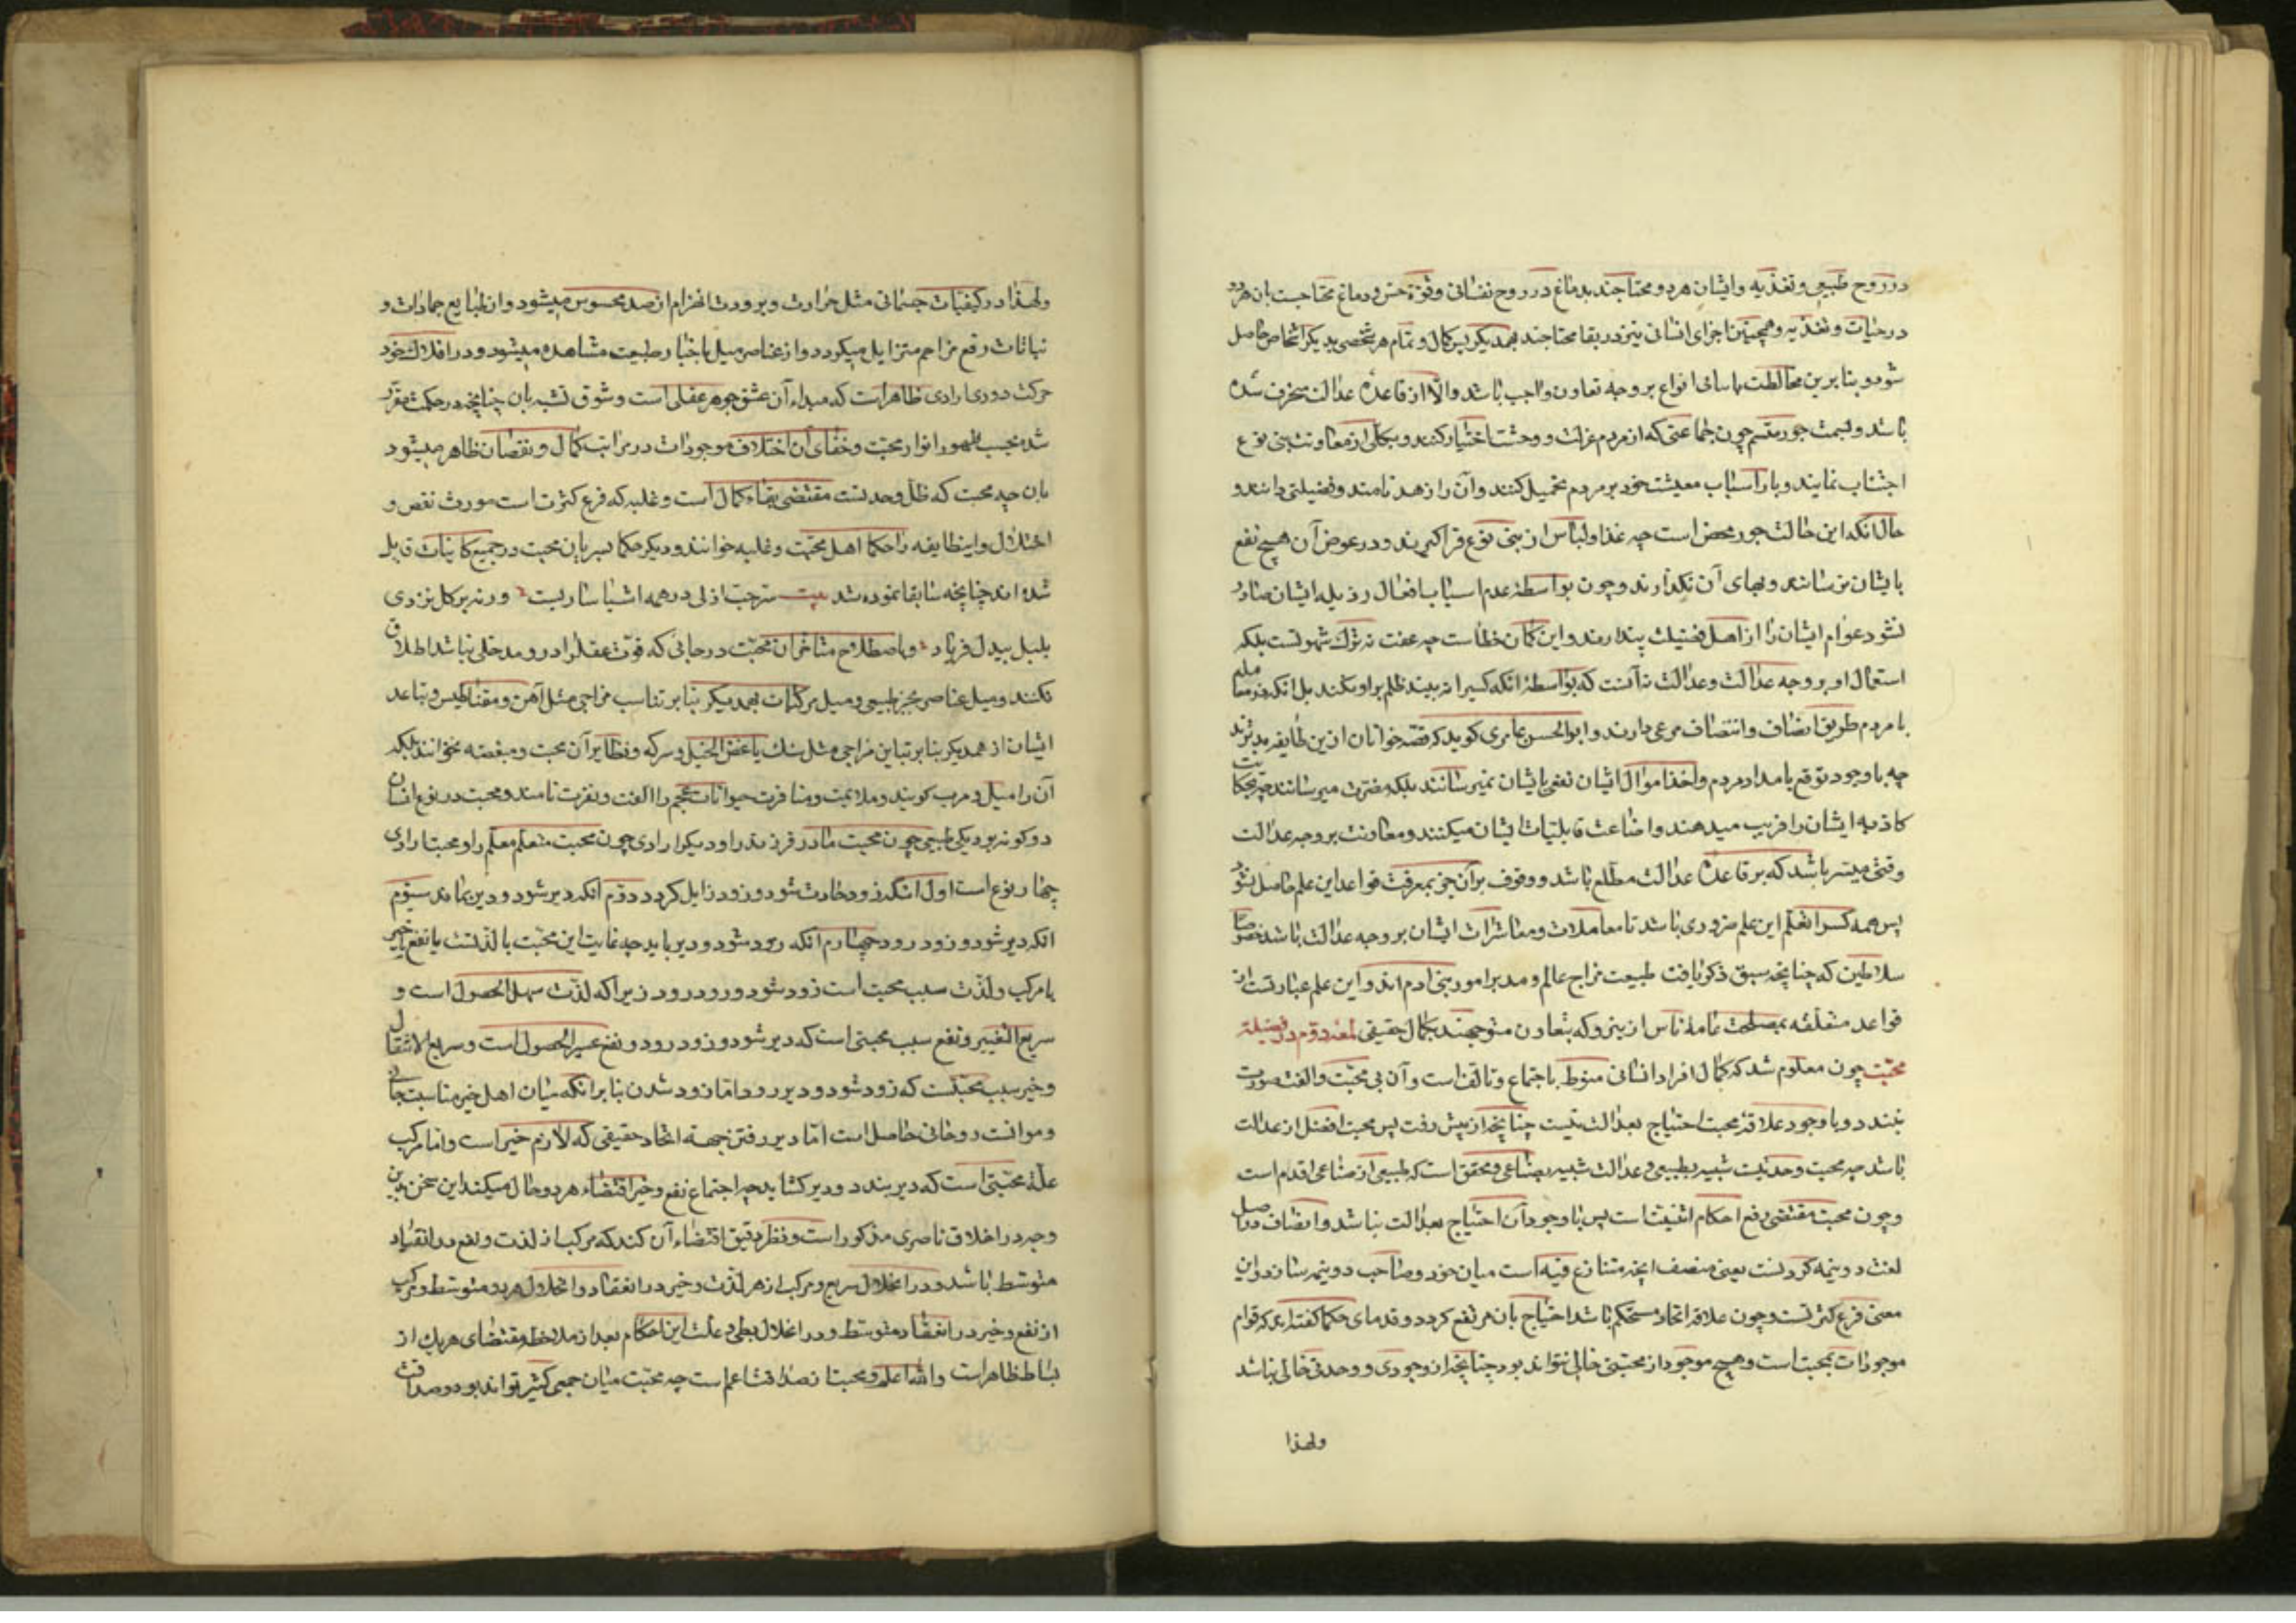 در روح طبیعی و تغذیه و ایشان هر دو محتاجند بدماغ در روح نفسانی و قوة حس و دماغ محتاجست بان هر دو
در حیات و تغذیه و همچنین اجزای انسانی نیز در بقا محتاجند بهمدیکر پس کمال و تمام هر شخصی بدیکر اشخاص حاصل
شود و بنابرین مخالطت باسانی انواع بر وجه تعاون واجب باشد والا از قاعدهٔ عدالت منحرف شده
باشد و بسمت جور متسم چون جماعتی که از مردم عزلت و وحشت اختیار کنند و بکلی از معاونت بنی نوع
اجتناب نمایند و بار اسباب معیشت خود بر مردم تحمیل کنند و آن را زهد نامند و فضیلتی دانند و
حال انکه این حالت جور محض است چه غذا و لباس از بنی نوع فرا کیرند و در عوض آن هیچ نفع
بایشان نرسانند و بهای آن نکذارند و چون بواسطهٔ عدم اسباب افعال رذیله ایشان صادر
نشود عوام ایشان را از اهل فضیلت پندارند و این کمان خطاست چه عفت نه ترک شهوتست بلکه
استعمال او بر وجه عدالت و عدالت نه آنست که بواسطهٔ انکه کسی را نه بیند ظلم بر او نکند بل انکه در معامله
با مردم طریق انصاف و انتصاف مرعی دارند و ابو الحسن عامری کوید که قصه خوانان ازین طایفه بدترند
چه با وجود توقع بامداد مردم و اخذ اموال ایشان نفعی بایشان نمیرسانند بلکه مضرت میرسانند چه بحکایت
کاذبه ایشان را فریب میدهند و اضاعت قابلیات ایشان میکنند و معاونت بر وجه عدالت
وقتی میسر باشد که بر قاعدهٔ عدالت مطلع باشد و وقوف بر آن جز بمعرفت قواعد این علم حاصل نشود
پس همه کس را تعلم این علم ضروری باشد تا معاملات و معاشرات ایشان بر وجه عدالت باشد خصوصا
سلاطین که چنانچه سبق ذکر یافت طبیعت مزاج عالم و مدبر امور بنی ادم اند و این علم عبارتست از
قواعد متعلقه بمصلحت عامهٔ ناس ازینرو که بتعاون متوجهند بکمال حقیقی لمعه دوم در فضیلة
محبت چون معلوم شد که کمال افراد انسانی منوط باجتماع و تالفست و آن بی محبت و الفت صورت
نبندد و با وجود علاقهٔ محبت احتیاج بعدالت نیست چنانچه از پیش رفت پس محبت افضل از عدالت
باشد چه محبت وحدتیست شبیه بطبیعی و عدالت شبیه بصناعی و محقق است که طبیعی از صناعی اقدم است
و چون محبت مقتضی رفع احکام اثنینیت است پس با وجود آن احتیاج بعدالت نباشد و انصاف در اصل
لغت دو نیمه کردنست یعنی منصف انچه متنازع فیه است میان خود و صاحب دو نیمه سازد و این
معنی فرع کثرتست و چون علاقه اتحاد مستحکم باشد احتیاج بان مرتفع کردد و قدمای حکما کفته اند که قوام
موجودات بمحبت است و هیچ موجود از محبتی خالی نتواند بود چنانچه از وجودی و وحدتی خالی نباشد
ولهذا
ولهذا در کیفیات جسمانی مثل حرارت و برودت انهزام از ضد محسوس میشود و از طبایع جمادات و
نباتات رفع مزاحم متزایل میکردد و از عناصر میل باحیاز طبیعت مشاهده میشود و در افلاک خود
حرکت دوری ارادی ظاهر است که مبداء آن عشق جوهر عقلی است و شوق تشبه بان چنانچه در حکمت مقرر
شد بحسب ظهور انوار محبت و خفای آن اختلاف موجودات در مراتب کمال و نقصان ظاهر میشود
بان چه محبت که ظل وحدتست مقتضی بقاء کمال است و غلبه که فرع کثرت است مورث نقص و
اختلال و اینطایفه را حکما اهل محبت و غلبه خوانند و دیکر حکما بسریان محبت در جمیع کاینات قایل
شده اند چنانچه سابقا نموده شد بیت سرّ حب ازلی در همه اشیا ساریست ورنه بر کل نزدی
بلبل بیدل فریاد و باصطلاح متاخران محبت در جائی که قوت عقل را در و مدخلی نباشد اطلاق
نکنند و میل عناصر بحیز طبیعی و میل مرکبات بهمدیکر بنابر تناسب مزاجی مثل آهن و مقناطیس و تباعد
ایشان از همدیکر بنابر تباین مزاجی مثل سنک باغض الخل و سرکه و نظایر آن محبت و مبغضه نخوانند بلکه
آن را میل و هرب کویند و ملایمت و منافرت حیوانات عجم را الفت و نفرت نامند و محبت در نوع انسان
دو کونه بود یکی طبیعی چون محبت مادر فرزند را و دیکر ارادی چون محبت متعلم معلم را و محبت ارادی
چهار نوع است اول انکه زود حادث شود و زود زایل کردد دوم انکه دیر شود و دیر بماند سیوم
انکه دیر شود و زود رود چهارم انکه زود شود و دیر باید چه غایت این محبت یا لذتست یا نفع یا خیر
یا مرکب و لذت سبب محبت است زود شود و زود رود زیرا که لذت سهل الحصول است و
سریع التغییر و نفع سبب محبتی است که دیر شود و زود رود و نفع عسیر الحصول است و سریع الانتقال
و خیر سبب محبتست که زود شود و دیر رود اما زود شدن بنابر انکه میان اهل خیر مناسبت جانی
و موانست روحانی حاصل است اما دیر رفتن جهت اتحاد حقیقی که لازم خیر است و اما مرکب
علة محبتی است که دیر بندد و دیر کشاید چه اجتماع نفع و خیر اقتضاء هر دو حال میکند این سخن برین
وجه در اخلاق ناصری مذکور است و نظر دقیق اقتضاء آن کند که مرکب از لذت و نفع در انعقاد
متوسط باشد و در انحلال سریع و مرکب از هر لذت و خیر در انعقاد و انحلال هر دو متوسط و مرکب
از نفع و خیر در انعقاد متوسط و در انحلال بطی و علت این احکام بعد از ملاحظه مقتضای هر یک از
بسایط ظاهر است والله اعلم و محبت از صداقت اعم است چه محبت میان جمعی کثیر تواند بود و صداقت